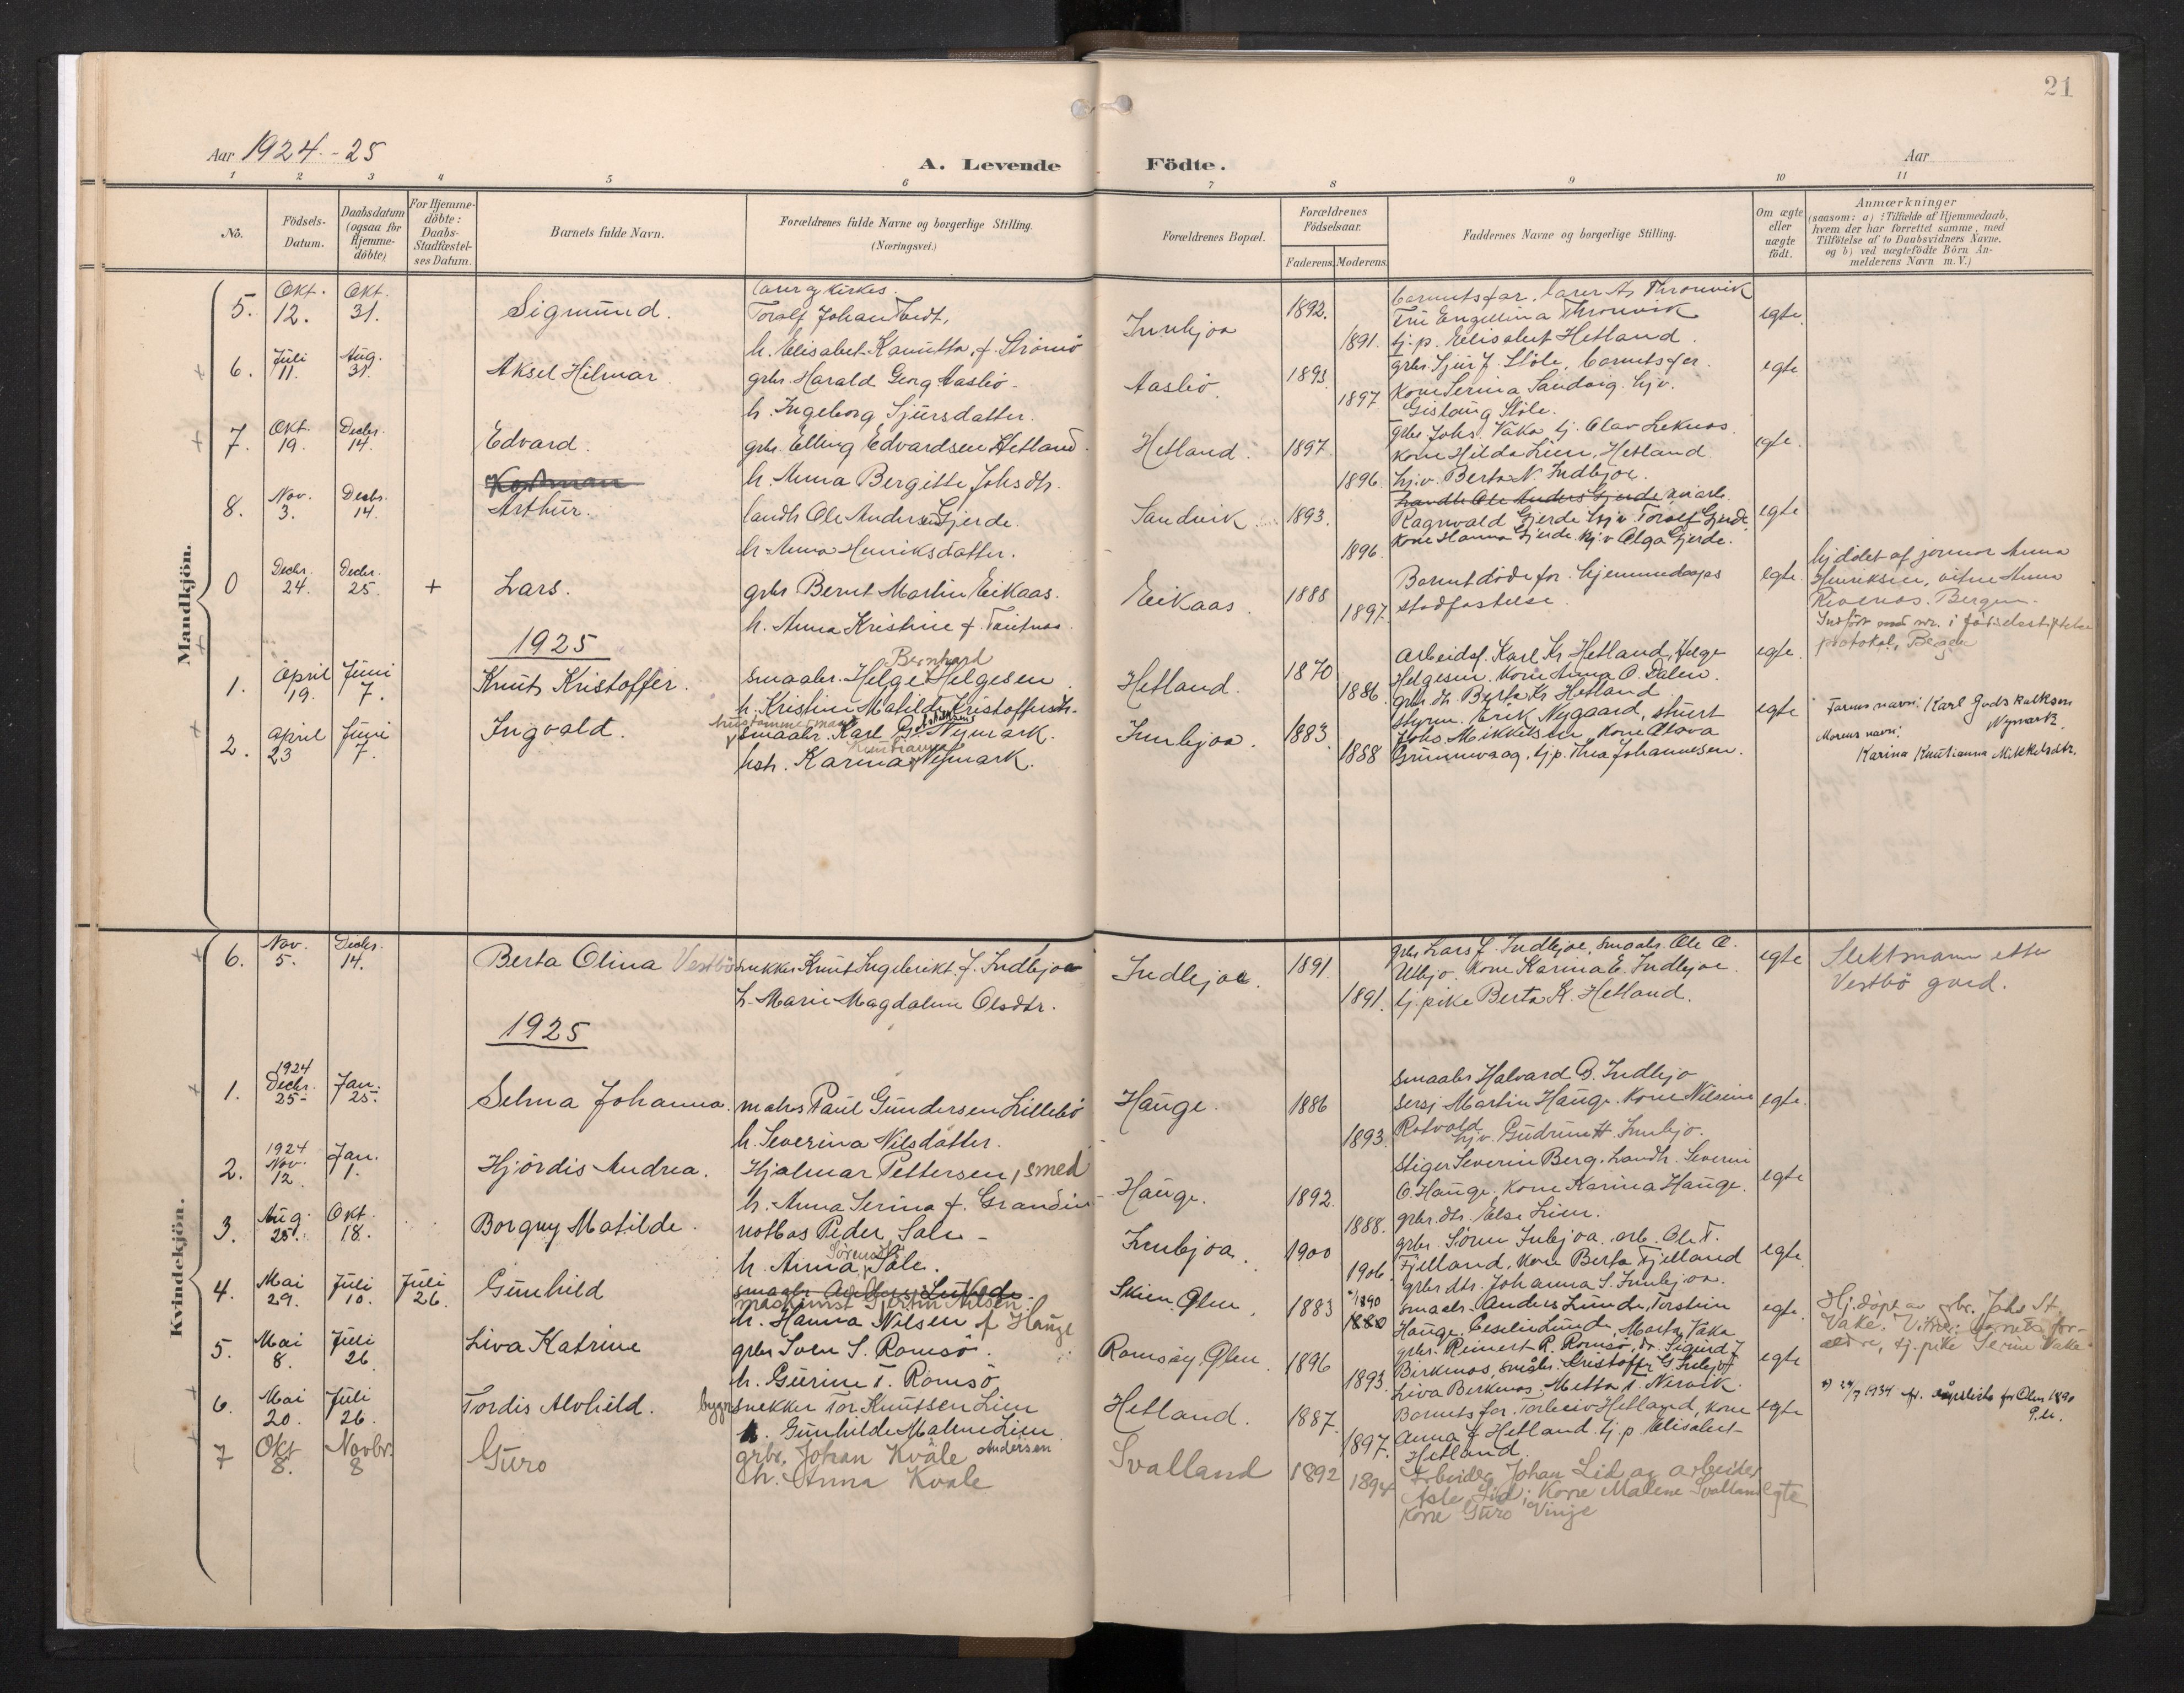 21
Aar 1924.-25
A. Levende Födte.
Aar
1 2 3 4 5 6 7 8 9 10 11
No.
Födsels-
Datum.
Daabsdatum
(ogsaa for
Hjemme-
döbte)
For Hjemme-
döbte:
Daabs-
Stadfæstel-
ses Datum.
Barnets fulde Navn.
Forældrenes fulde Navne og borgerlige Stilling.
(Næringsvei.)
Forældrenes Bopæl.
Forældrenes
Födselsaar.
Faderens. Moderens.
Faddernes Navne og borgerlige Stilling.
Om ægte
eller
uægte
födt.
Anmærkninger
(saasom: a) i Tilfælde af Hjemmedaab,
hvem der har forrettet samme, med
Tilföielse af to Daabsvidners Navne.
og b) ved uægtefödte Börn An-
melderens Navn m. V.)
Mandkjön.
5. Okt. 12. Okt. 31. Sigmund.
Toralf Johan Tvedt,
h. Elisabet Kanutta, f. Strömö
Innbjoa 1892. 1891.
tj. p. Elisabet Hetland.
egte.
6. Juli 11. Aug. 31. Aksel Hilmar
grbr. Harald Georg Aasbö
h. Ingeborg Sjursdatter.
Aasbö. 1893. 1897
grbr Sjur J. Stöle, barnets far.
Kone Serina Sandvig. hjv.
Gislaug Stöle.
egte
7. Okt. 19. Decbr. 14. Edvard.
grbr. Elling Edvardsen Hetland.
h. Anna Bergitte Johsdtr.
Hetland. 1897. 1896.
grbr Johs. Vaka tj. Olav Leknes.
kone Hilda Lien, Hetland.
hj.v. Berta N. Indbjoe.
egte.
8. Nov. 3. Decbr. 14. Arthur.
landh Ole Andersen Gjerde.
h. Anna Henriksdatter.
Sandvik 1893. 1896.
Landh Ole Anders Gjerde
Ragnvald Gjerde hjv. Toralf Gjerde
kone Hanna Gjerde. hj.v Olga Gjerde.
egte
0 Decbr. 24. Decbr. 25. + Lars.
grbr Bernt Martin Eikaas.
h. Anna Kristine f.
Eikaas. 1888 1897.
Barnet döde for hjemmedaapens
stadfæstelse.
egte.
hj.döbt af jormor Anna
Henriksen, vitne Anna
Bergen.
protokol, Bergen
1925
1. April 19. Juni 7. Knut Kristoffer.
Bernhard
smaabr. Helge Helgesen
h. Kristine Matilde Kristoffersdtr.
Hetland. 1870 1886.
arbeidsf. Karl Kr Hetland, Helge
Helgesen. Kone Anna O. Dalen.
grbr. dtr. Berta Kr Hetland
egte.
2. April 23 Juni 7. Ingvald.
smaabr. Karl G. Nymark.
hstr. Karina Nymark.
Innbjoa. 1883. 1888
styrm. Erik Nygaard, stuert
Johs. Mikkelsen, Kone Olava
Grunnevaag, tj.p. Thea Johannesen.
egte
Farens navn: Karl Godskalksen
Nymark.
Morens navn:
Karina Knutianna Mikkelsdtr.
Kvindekjön.
6. Nov. 5. Decbr. 14. Berta Olina Vestbö
snekker Knut Ingebrikt J. Indbjoe
h. Marie Magdalene Olsdtr.
Indbjoe. 1891. 1891.
grbr Lars J. Indbjoe, smaabr. Ole O.
Utbjo. kone Karina E. Indbjoe.
tj. pike Berta K. Hetland.
egte
Slektsnavn etter
Vestbö gard.
1925
1. 1924 Decbr. 25- Jan. 25. Selma Johanna.
matros Paul Gundersen Lillebö
h. Severina Nilsdatter.
Hauge. 1886 1893.
smaabr Halvard B. Indbjo
sersj Martin Hauge. Kone Nilsine
Rotvold hjv. Gudrun H. Innbjo.
egte.
2. 1924 Nov. 12 Jan. 1. Hjördis Andrea.
Hjalmar Pettersen, smed
h. Anna Serina f. Grandin
Hauge. 1892. 1888.
Stiger Severin Berg. Landh. Severin
O. Hauge. kone Karina Hauge.
grbr. dtr. Else Lien.
egte
3. Aug. 25. Okt. 18. Borgny Matilde.
notbas Peder Sale -
h. Anna Sale.
Innbjoa. 1900 1906.
grbr. Sören Inbjoa. arb. Ole T.
Fjelland, kone Berta Fjelland
grbr dtr. Johanna S. Innbjoa.
egte.
4. Mai 29. Juli 10. Juli 26. Gunhild
maskinist Gjertin Nilsen.
h. Hanna Nilsen f. Hauge
Skien, Ølen. 1883 *1890 1880
smaabr. Anders Lunde, Torstein
Hauge. Ceselie Lunde, Marta Vaka
egte.
Hj.döpt av grbr. Johs St.
Vake. Vitner: barnets for-
eldre, tj.pike Serine Vake.
5. Mai 8. Juli 26. Liva Katrine
grbr Sven S. Romsö.
h. Gurine T. Romsö
Romsöy, Ølen. 1896 1893.
grbr. Reinert R. Romsö, Sigurd J
Birkenes, småbr. Kristoffer G Inbjo
Liva Birkenes. Metta T. Nervik.
egte
*) 24/7 1934 Ølen 1890
6. Mai 20. Juli 26. Tordis Alvhild.
bygn snekker Tor Knutsen Lien
h. Gunhilde Malene Lien.
Hetland. 1887. 1897.
Barnets far. Torleiv Hetland, kone
Anna J Hetland. tj.p. Elisabet-
Hetland.
egte
7 Okt 8. Novbr. 8 Guro
grbr. Johan Kvåle Andersen
h. Anna Kvale
Svalland 1892 1894
Arbeider Johan Lid og arbeider
Asle Lid; Kone Malene Svalland
Kone Guro Vinje
egte